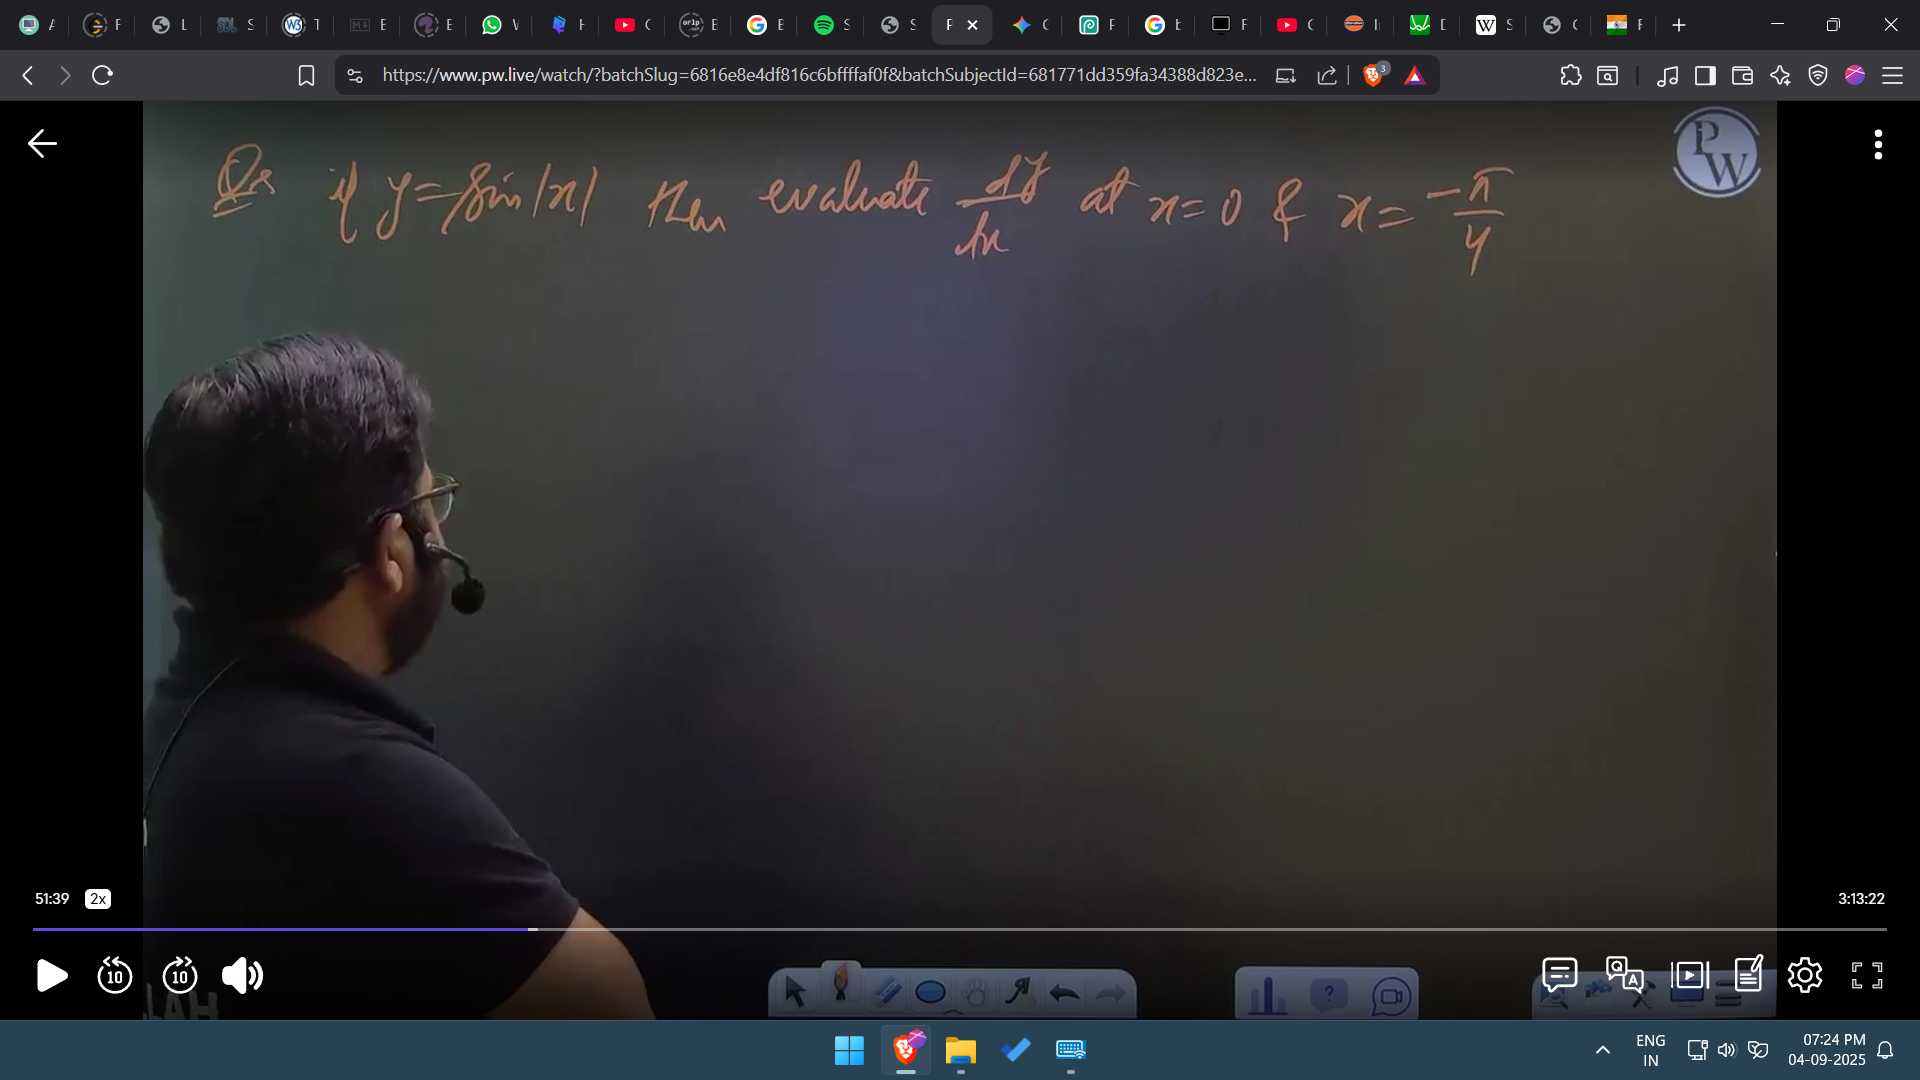 https://www.pw.live/watch/?batchSlug=6816e8e4df816c6bffffaf0f&batchSubjectId=681771dd359fa34388d823e...
3
PW
Qs if y = sin|x| then evaluate dy/dx at x = 0 & x = -π/4
51:39 2x 3:13:22
10 10
LAH
ENG
IN
07:24 PM
04-09-2025